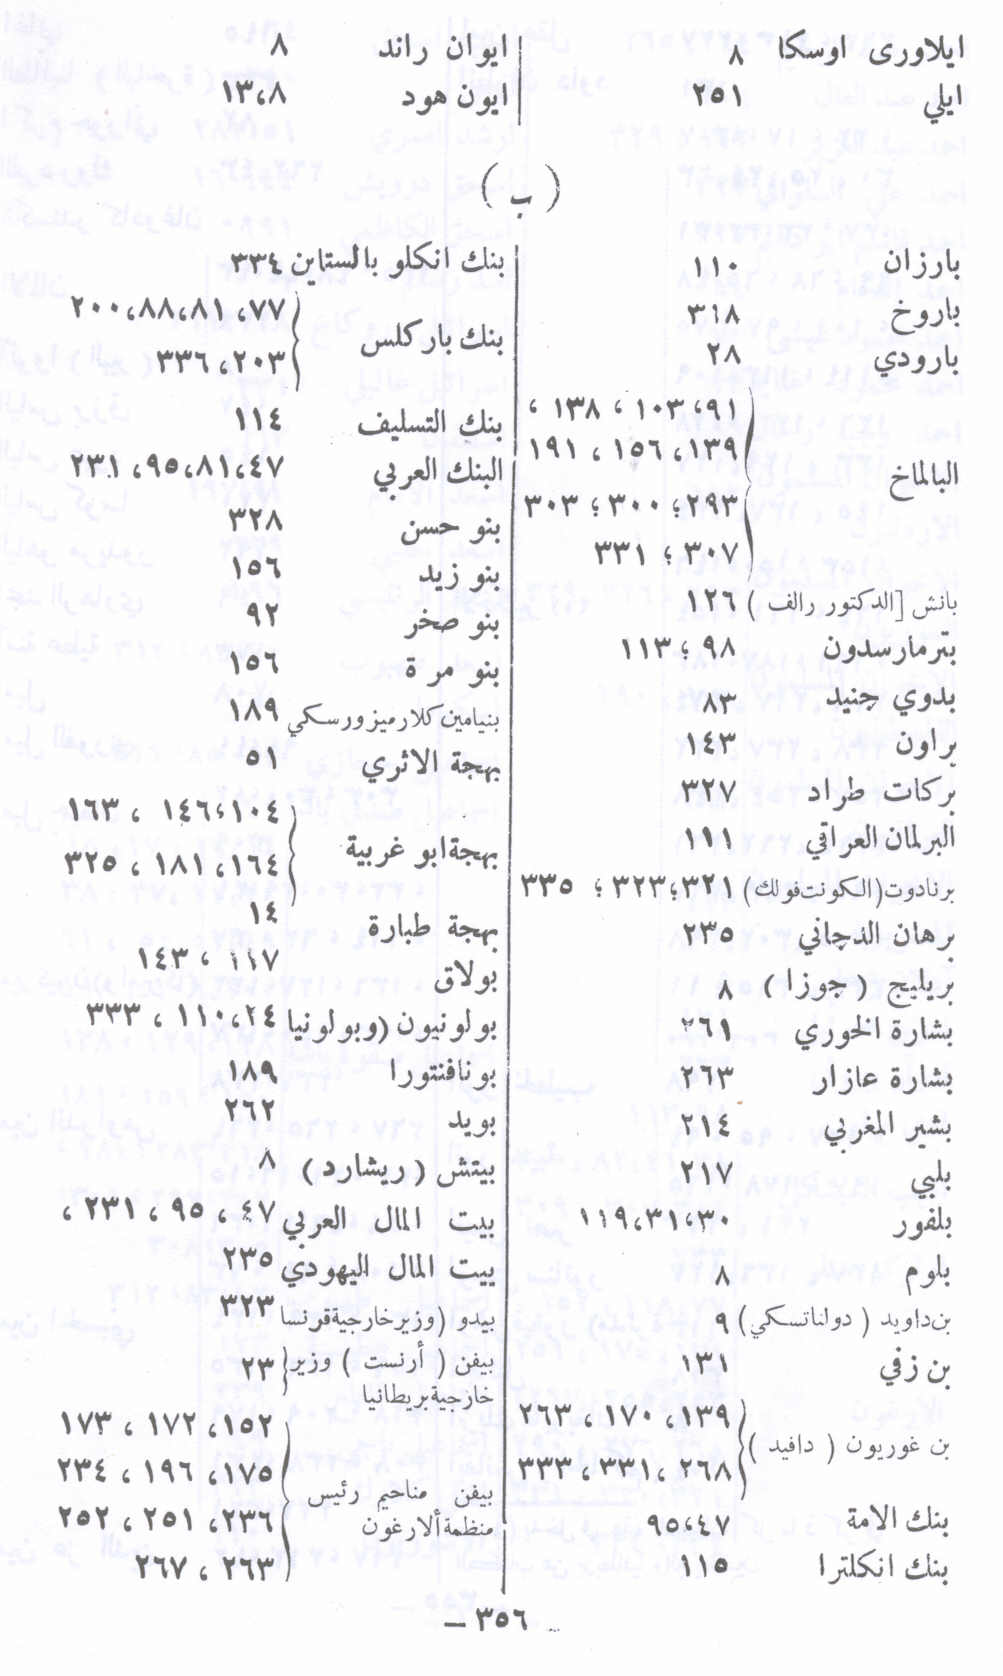 ايلاورى اوسكا ٨
ايلي ٢٥١
ايوان راند ٨
ايون هود ١٣،٨
( ب )
بارزان ١١٠
باروخ ٣١٨
بارودي ٢٨
البالماخ ٩١، ١٠٣ ، ١٣٨ ،
١٣٩، ١٥٦ ، ١٩١
٢٩٣؛ ٣٠٠ ؛ ٣٠٣
٣٠٧ ؛ ٣٣١
بانش [الدكتور رالف ) ١٢٦
بترمارسدون ٩٨ ؛ ١١٣
بدوي جنيد ٨٣
براون ١٤٣
بركات طراد ٣٢٧
البرلمان العراقي ١١١
برنادوت (الكونت فولك) ٣٢١؛٣٢٣ ؛ ٣٣٥
برهان الدجاني ٢٣٥
بريليج ( جوزا ) ٨
بشارة الخوري ٢٦١
بشارة عازار ٢٦٣
بشير المغربي ٢١٤
بلبي ٢١٧
بلفور ٣٠،٣١،١١٩
بلوم ٨
بن داويد ( دولناتسكي ) ٩
بن زفي ١٣١
بن غوريون ( دافيد ) ١٣٩، ١٧٠ ، ٢٦٣
٢٦٨ ،٣٣١، ٣٣٣
بنك الامة ٤٧،٩٥
بنك انكلترا ١١٥
بنك انكلو بالستاين ٣٣٤
بنك باركلس ٧٧، ٨١،٨٨،٢٠٠
٢٠٣، ٣٣٦
بنك التسليف ١١٤
البنك العربي ٤٧،٨١،٩٥، ٢٣١
بنو حسن ٣٢٨
بنو زيد ١٥٦
بنو صخر ٩٢
بنو مرة ١٥٦
بنيامين كلارميزورسكي ١٨٩
بهجة الاثري ٥١
بهجة ابو غربية ١٠٤،١٤٦ ، ١٦٣
١٦٤، ١٨١ ، ٣٢٥
بهجة طبارة ١٤
بولاق ١١٧ ، ١٤٣
بولونيون (وبولونيا ٢٤،١١٠ ، ٣٣٣
بونافنتورا ١٨٩
بويد ٢٦٢
بيتش (ريشارد ) ٨
بيت المال العربي ٤٧ ، ٩٥ ، ٢٣١ ،
بيت المال اليهودي ٢٣٥
بيدو (وزير خارجية فرنسا ٣٢٣
بيفن ( أرنست ) وزير ٢٣
خارجية بريطانيا
بيفن مناحيم رئيس منظمة ألارغون ١٥٢، ١٧٢ ، ١٧٣
١٧٥، ١٩٦ ، ٢٣٤
٢٣٦، ٢٥١ ، ٢٥٢
٢٦٣ ، ٢٦٧
٣٥٦ –